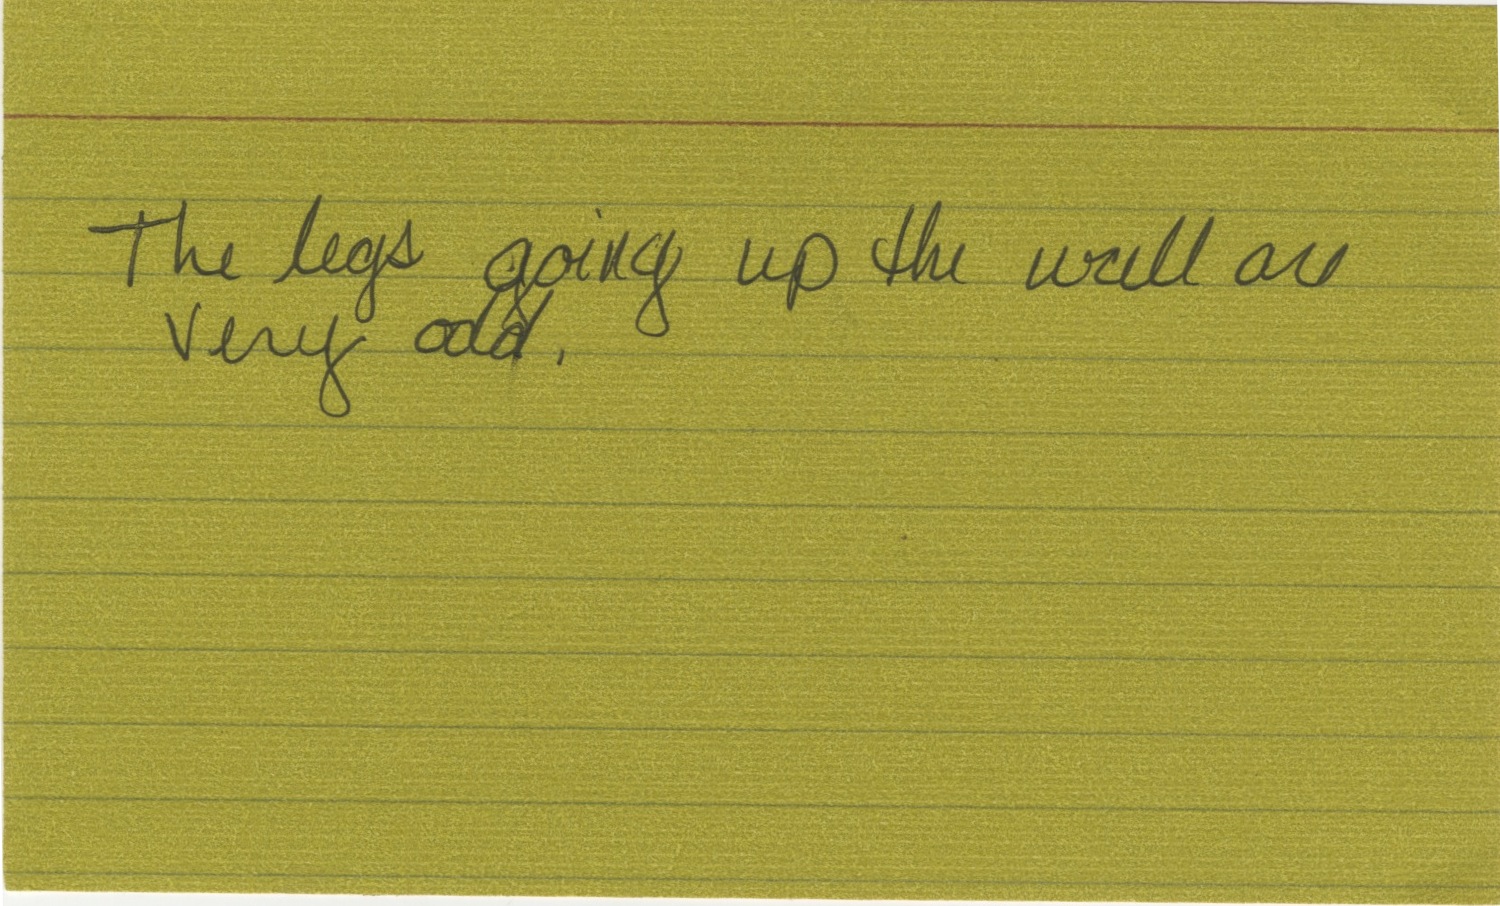 The legs going up the wall are
very odd.